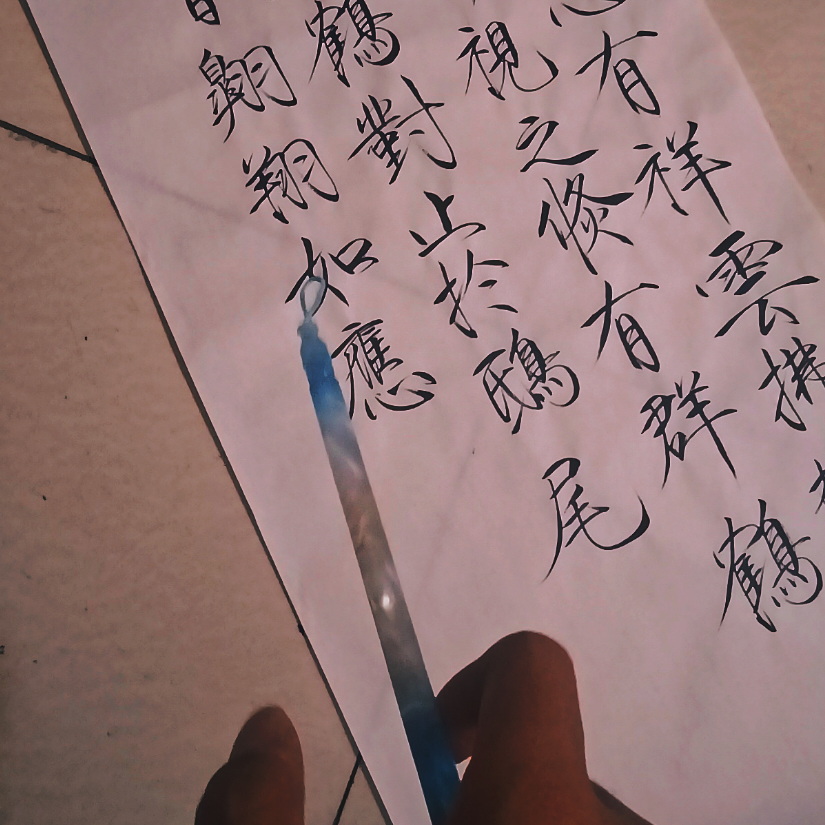 有祥雲拂
視之倏有群鶴
鶴對止於鴟尾
翱翔如應